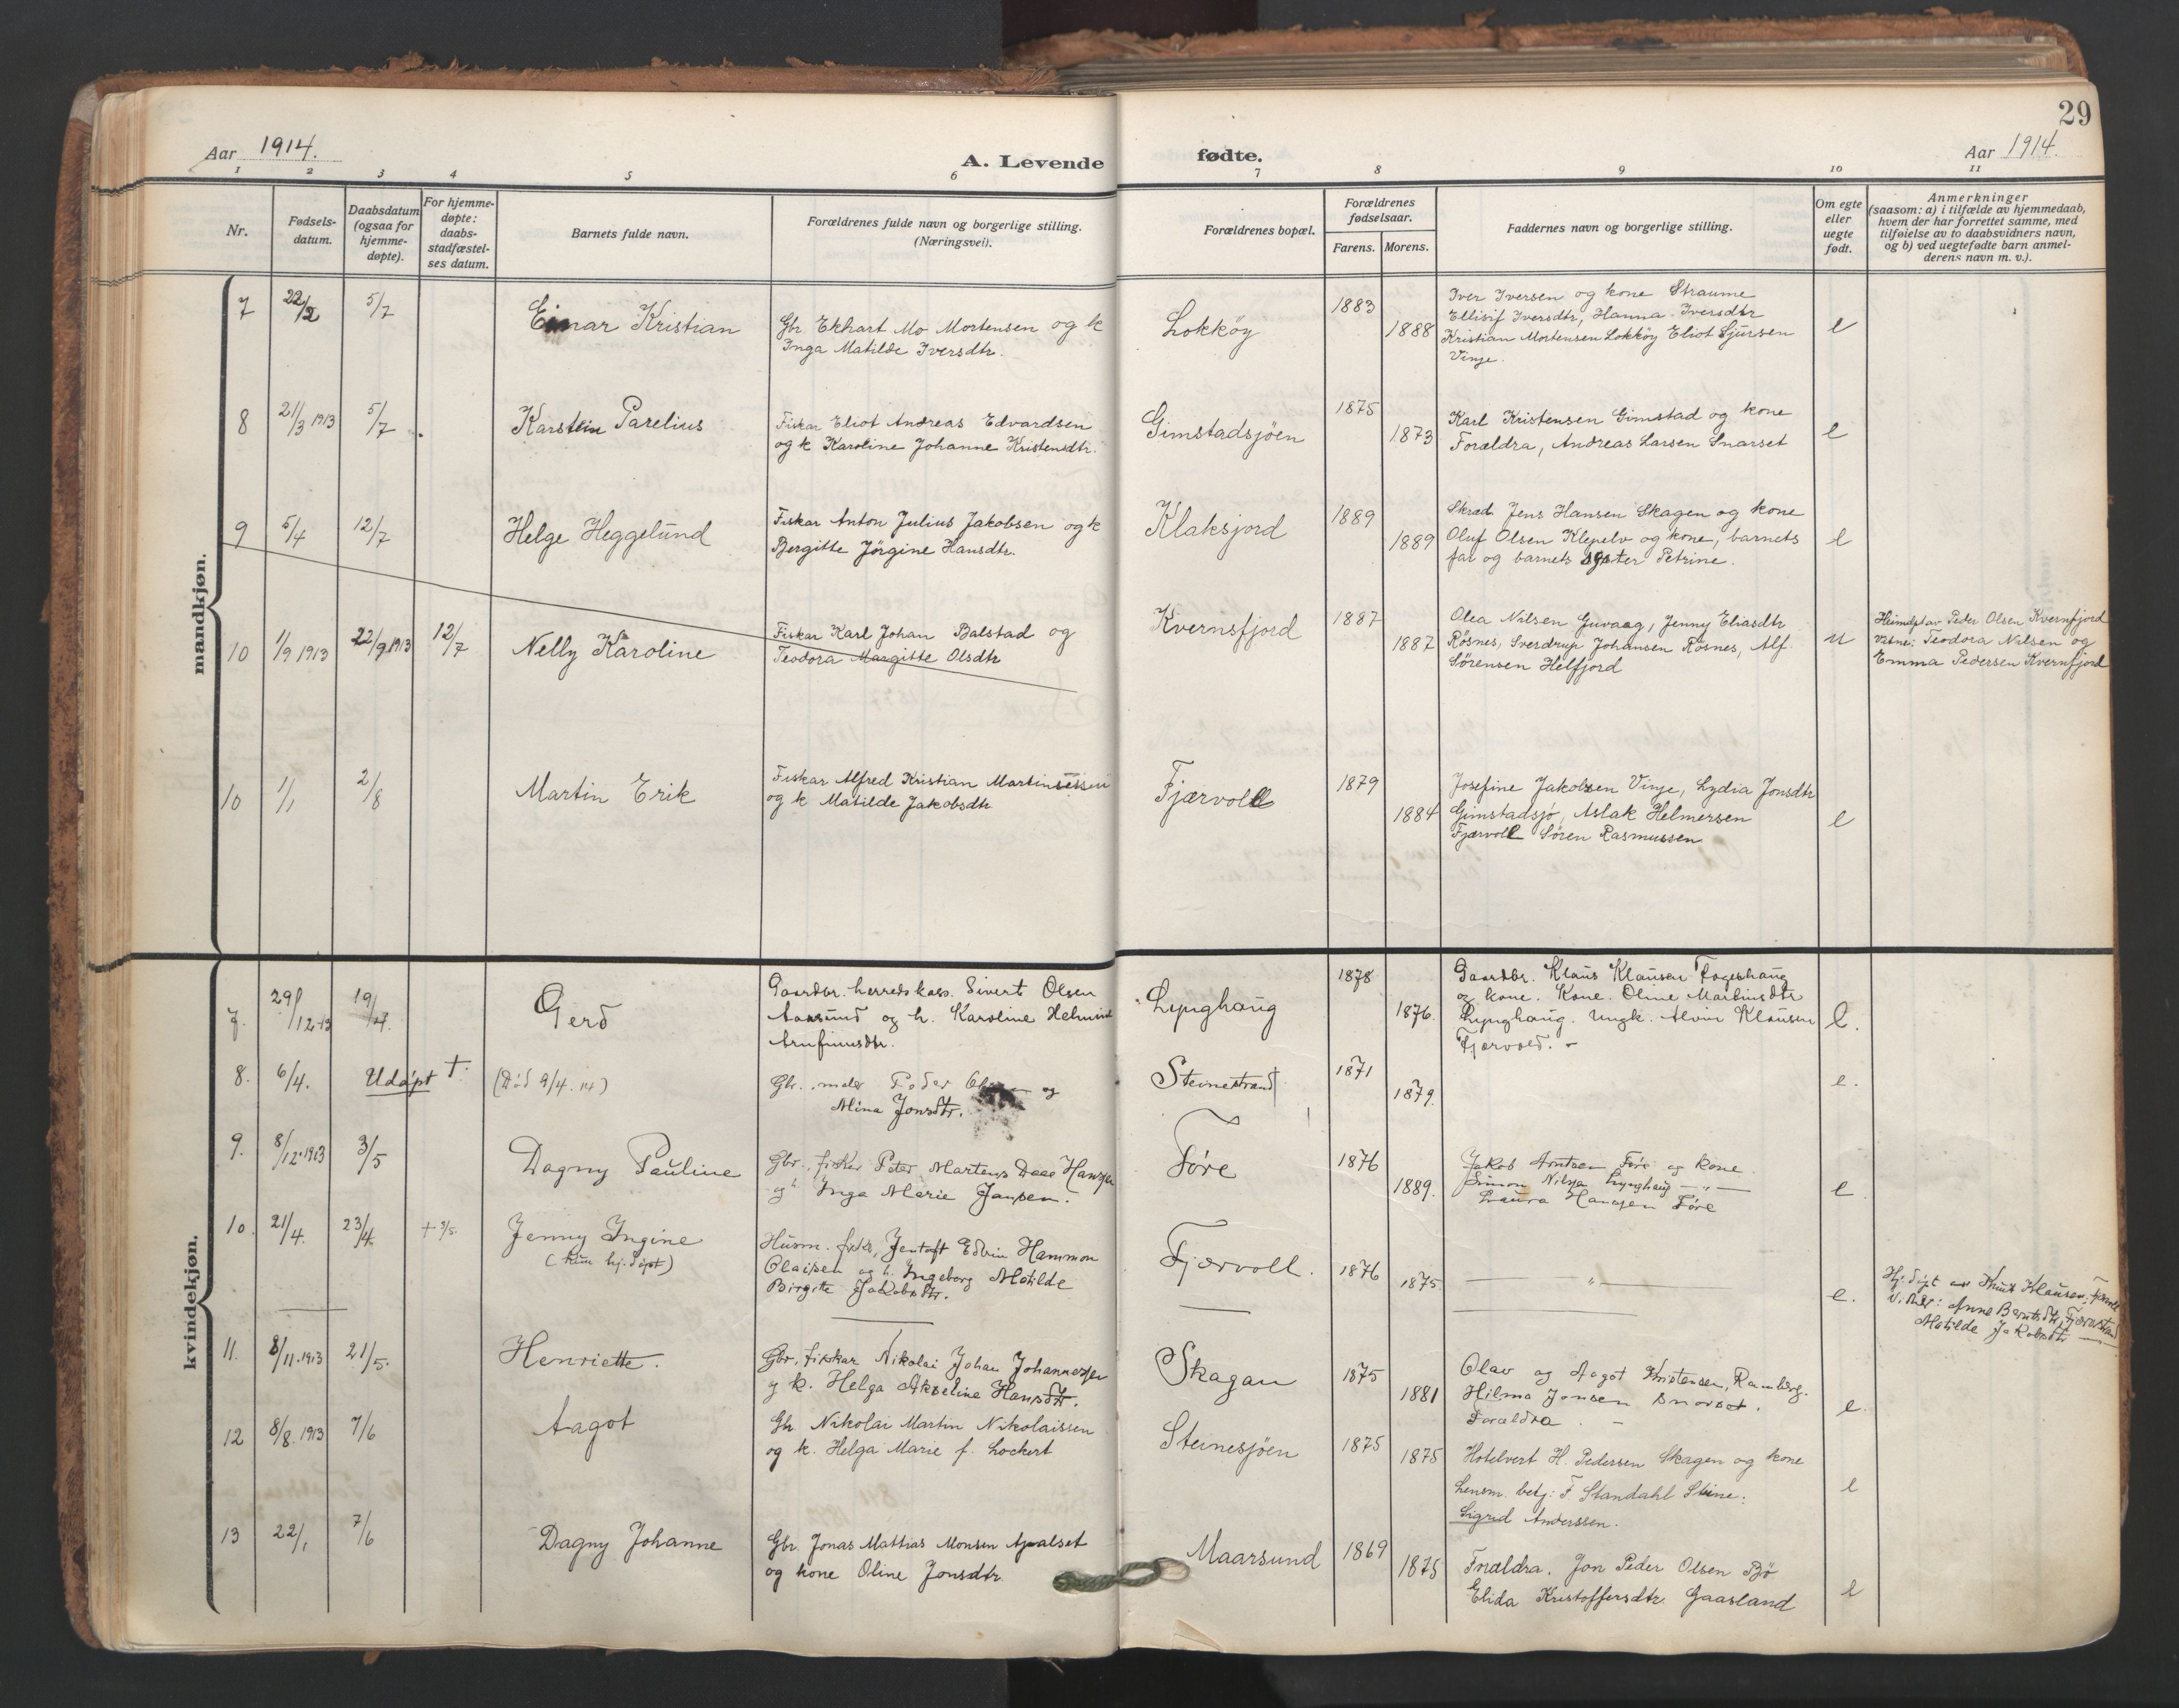 29
Aar 1914.
A. Levende fødte.
Aar 1914.
1 2 3 4 5 6 7 8 9 10 11
Nr.
Fødsels-
datum.
Daabsdatum
(ogsaa for
hjemme-
døpte).
For hjemme-
døpte:
daabs-
stadfæstel-
ses datum.
Barnets fulde navn.
Forældrenes fulde navn og borgerlige stilling.
(Næringsvei).
Forældrenes bopæl.
Forældrenes
fødselsaar.
Farens. Morens.
Faddernes navn og borgerlige stilling.
Om egte
eller
uegte
født.
Anmerkninger
(saasom: a) i tilfælde av hjemmedaab,
hvem der har forrettet samme, med
tilføielse av to daabsvidners navn,
og b) ved uegtefødte barn anmel-
derens navn m. v.).
mandkjøn.
7 22/2 5/7
Einar Kristian
Gbr Ekhart Mo Mortensen og k
Inga Matilde Iversdtr.
Lokkøy
1883
1888
Iver Iversen og kone Straume
Ellisif Iversdtr, Hanna Iversdtr
Kristian Mortensen Lokkøy Eliot Sjursen
Vinje.
e
8 21/3 1913 5/7
Karstein Parelius
Fiskar Eliot Andreas Edvardsen
og k Karoline Johanne Kristensdtr.
Gimstadsjøen
1875
1873
Karl Kristensen Gimstad og kone
Forældra, Andreas Larsen Snarset
e
9 5/4 12/7
Helge Heggelund
Fiskar Anton Julius Jakobsen og k
Bergitte Jörgine Hansdtr.
Klaksjord
1889
1889
Skræd. Jens Hansen Skagen og kone
Oluf Olsen Klepelv og kone, barnets
far og barnets syster Petrine.
e
10 1/9 1913 22/9 1913 12/7
Nelly Karoline
Fiskar Karl Johan Balstad og
Teodora Margitte Olsdtr
Kvernsfjord
1887
1887
Olea Nilsen Guvaag, Jenny Eliasdtr
Røsnes, Sverdrup Johansen Røsnes, Alf
Sörensen Helfjord
u
Heimdøpt av Peder Olsen Kvernfjord
Vitne: Teodora Nilsen og
Emma Pedersen Kvernfjord
10 1/1 2/8
Martin Erik
Fiskar Alfred Kristian Martinussen
og k Matilde Jakobsdtr
Fjærvoll
1879
1884
Josefine Jakobsen Vinje, Lydia Jonsdtr
Gimstadsjø, Aslak Helmersen
Fjærvoll Søren Rasmussen
e
kvindekjøn.
7. 29/12-13 19/4.
Gerd
Gaardbr. herredskass. Sivert Olsen
og h. Karoline
Lynghaug
1878
1876.
Gaardbr. Klaus Klausen Fageshaug
og kone. Kone. Oline Martinsdtr
Lynghaug. Ungk. Alvin Klausen
Fjærvold. -
e.
8. 6/4. Udøpt †.
(Död 9/4. 14)
Gbr. Peder og
Alina Jonsdtr.
Steinestrand
1871
1879.
e.
9. 8/12.1913 3/5
Dagny Pauline
Gbr., fisker Peter Martens Daae Hansen
og h. Inga Marie Jansen.
Føre
1876
1889.
Jakob Arntsen Føre og kone.
Simon Nilsen Lynghaug — " —
Laura Hansen Føre
e
10. 21/4. 23/4. † 3/5.
Jenny Ingine
(kun hj. døpt)
Husm. fisker, Jentoft Edvin Hammon
Olaisen og h. Ingeborg Matilde
Birgitte Jakobsdtr.
Fjærvoll.
1876
1875
— " —
e.
Hj. døpt av Knut Klausen, Fjærvoll
Vidner: Anne Berntsdtr,
Matilde Jakobsdtr —
11. 8/11.1913 21/5.
Henriette.
Gbr. fiskar Nikolai Johan Johannessen
og k. Helga Akseline Hansdtr.
Skagan
1875
1881
Olav og Aagot Kristensen, Ramberg.
Hilma Jonsen Snorset.
Forældra. -
e.
12 8/8. 1913 7/6
Aagot
Gbr. Nikolai Martin Nikolaissen
og k. Helga Marie f. Lockert
Steinesjöen
1875
1875
Hotelvert H. Pedersen Skagen og kone
Lensm. betj: F Standahl Steine.
Sigrid Anderssen.
e
13 22/1 7/6
Dagny Johanne
Gbr. Jonas Mattias Monsen
og kone Oline Jonsdtr.
Maarsund
1869
1875
Forældra. Jon Peder Olsen Bø
Elida Kristoffersdtr. Gaasland
e